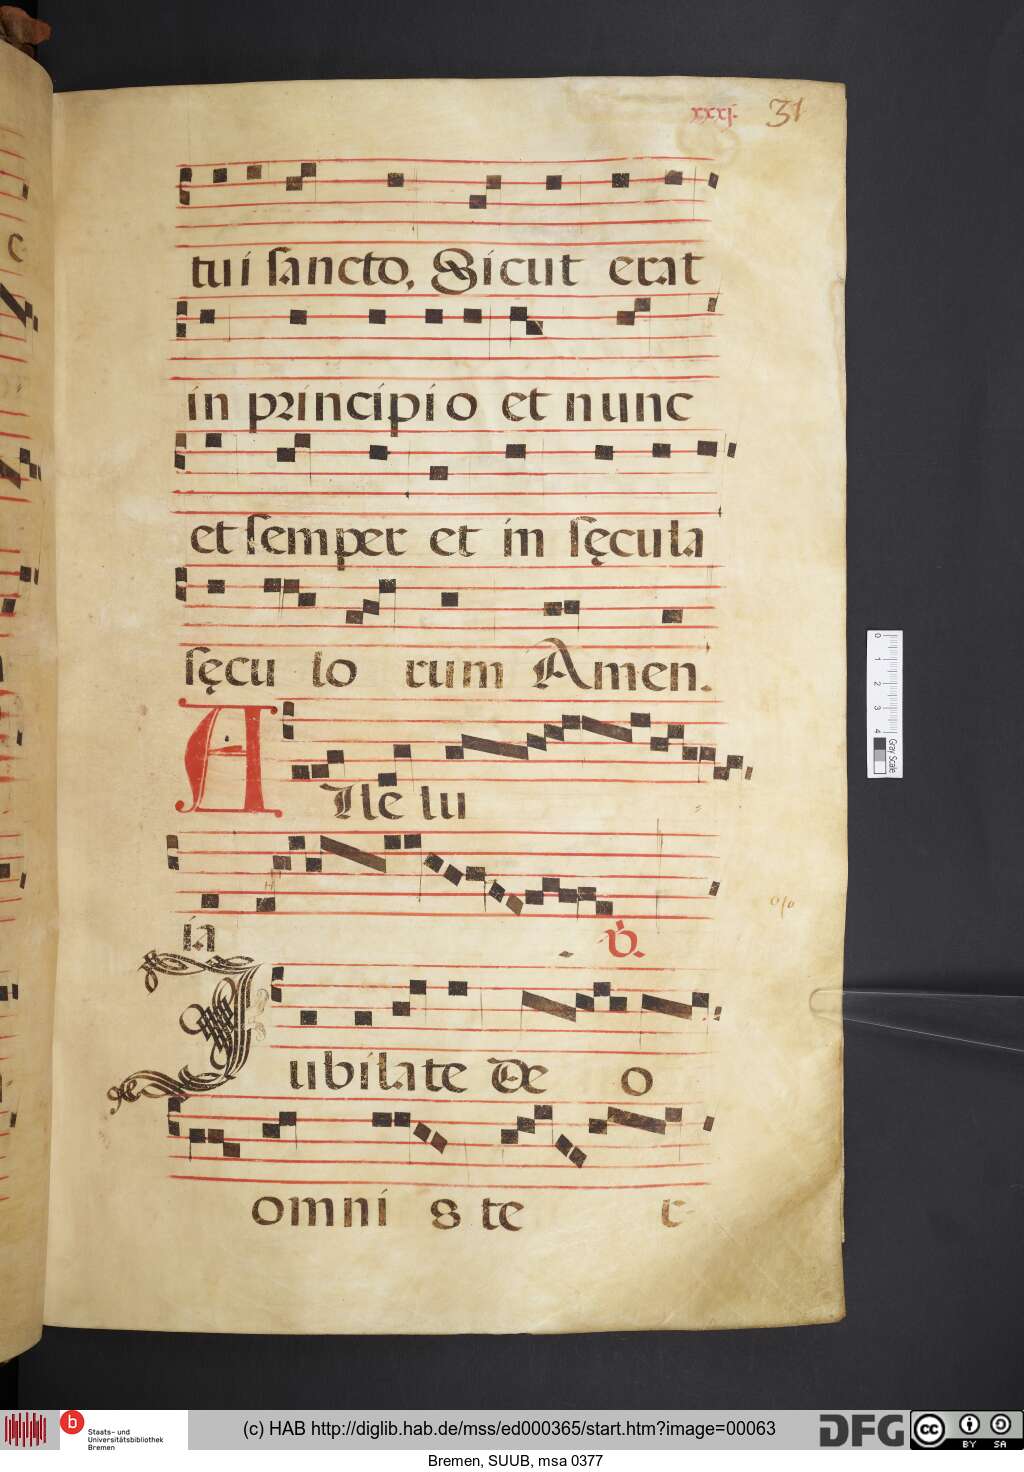 xxxj. 31
tui sancto, Sicut erat
in principio et nunc
et semper et in sęcula
sęcu lo rum Amen.
A lle lu
ia - V.
Jubilate De o
omni s te r-
0 1 2 3 4
Gray Scale
b
Staats- und
Universitätsbibliothek
Bremen
(c) HAB http://diglib.hab.de/mss/ed000365/start.htm?image=00063
DFG
cc BY SA
Bremen, SUUB, msa 0377